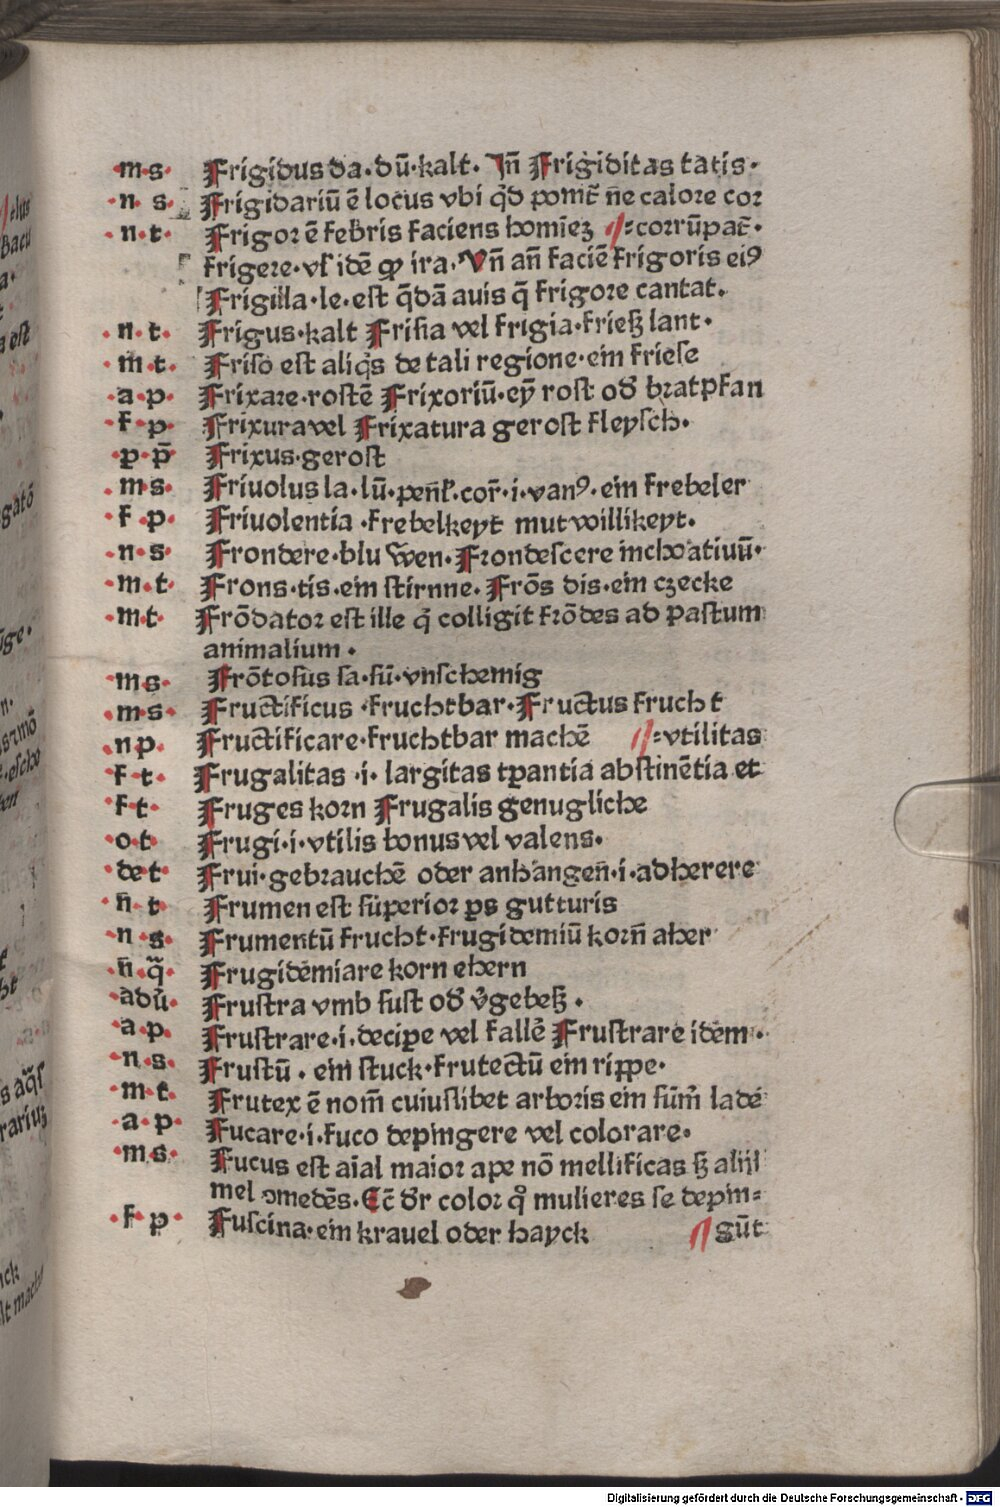 ·m·s· Frigidus da·dū·kalt· Jn̄ Frigiditas tatis·
·n· s· Frigidariū ē locus vbi q̄d ponit̄ ne calore cor
·n·t· Frigor ē febris faciens homīeꝫ ¶⸗corrūpat̄·
frigere·vƚ idē ꝙ ira·Vn̄ an̄ faciē frigoris eiꝰ
Frigilla·le·est q̄dā auis q̄ frigore cantat·
·n·t· Frigus·kalt Frisia vel frigia·frieß lant·
·m·t· Friso est aliq̇s de tali regione·ein friese
·a·p· Frixare·rostē Frixoriū·eȳ rost od̛ bratpfan
·f·p· Frixura vel Frixatura gerost fleysch·
·p·p̄· Frixus·gerost
·m·s· Friuolus la·lū·pen̄ƚ·cor̄·i·vanꝰ·ein frebeler
·f·p· Friuolentia ·frebelkeyt mutwillikeyt·
·n·s· Frondere·blu wen·Frondescere inchoatiuū·
·m·t· Frons·tis·ein stirnne·Frōs dis·ein czecke
·m·t· Frōdator est ille q̇ colligit frōdes ad pastum
animalium·
·m·s· Frōtosus sa·sū·vnschemig
·m·s· Fructificus ·fruchtbar·Fructus frucht
·n·p· Fructificare·fruchtbar machē ¶⸗vtilitas
·f·t· Frugalitas ·i· largitas tꝑantia abstinētia et
·f·t· Fruges korn Frugalis genugliche
·o·t· Frugi·i·vtilis bonus vel valens·
·de·t· Frui·gebrauchē oder anhangen̄·i·adherere
·n̄·t· Frumen est superior ꝑs gutturis
·n·s· Frumentū frucht·frugidemiū korn̄ aher
·n̄·q̄· Frugidēmiare korn ehern
·adu̇· Frustra vmb sust od̛ v̛gebeß·
·a·p· Frustrare·i·decipe vel fallē Frustrare idem·
·n·s· Frustū·ein stuck·frutectū ein rippe·
·m·t· Frutex ē nom̄ cuiuslibet arboris ein sūm̛ ladē
·a·p· Fucare·i·fuco depingere vel colorare·
·m·s· Fucus est aīal maior ape nō mellificas ß alijl
mel ꝯmedēs·Ec̄ dr̄ color q̊ mulieres se depin⸗
·f·p· Fuscina·ein krauel oder hayck ¶ gūt
Digitalisierung gefördert durch die Deutsche Forschungsgemeinschaft · DFG